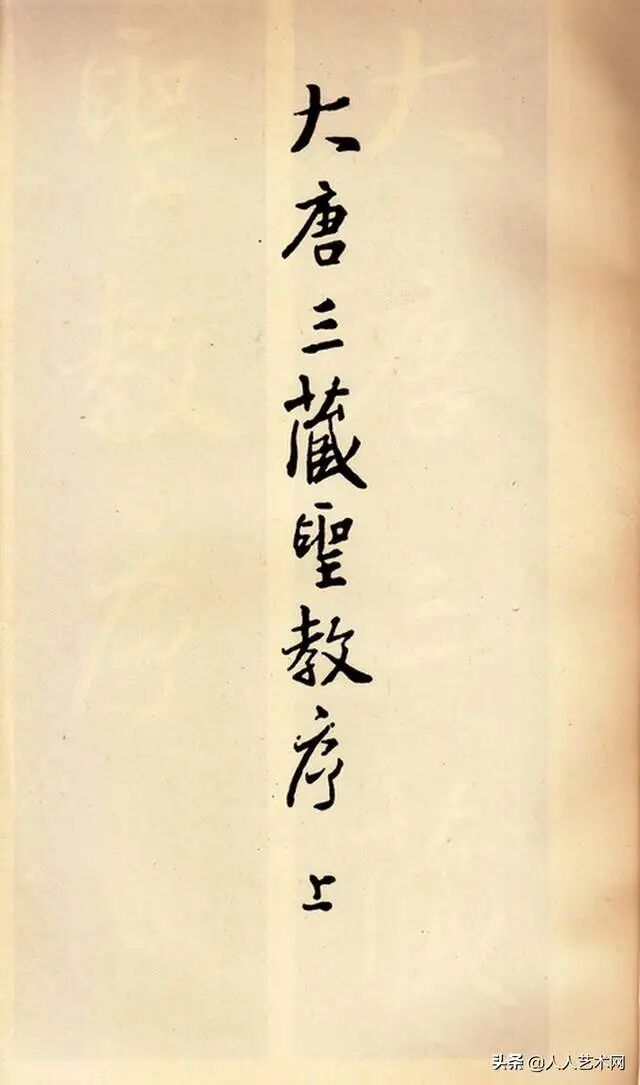 大唐三藏聖教序 上
头条 @人人艺术网